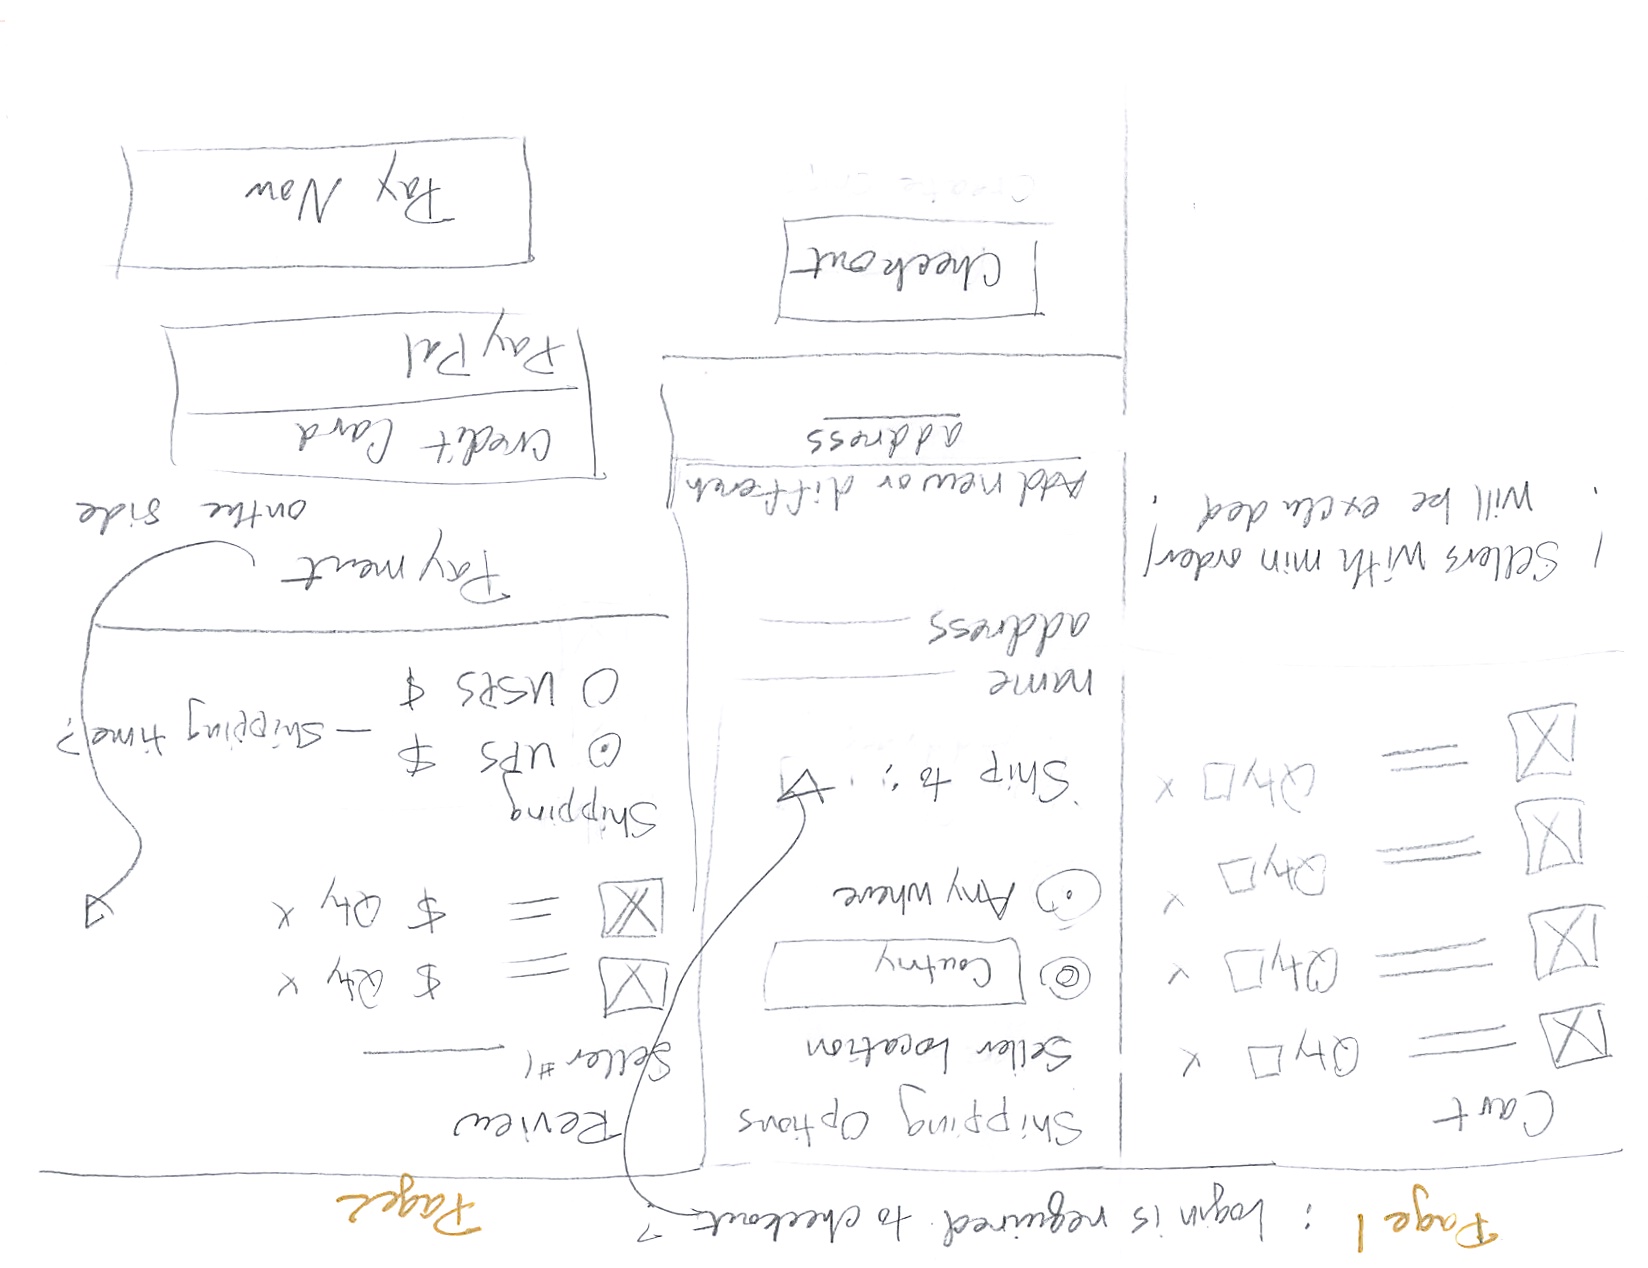 Page 1 : Login is required to checkout ?
Cart
Qty x
Qty x
Qty x
Qty x
! Sellers with min order !
will be excluded
Shipping Options
Seller Location
Coutny
Anywhere
Ship to :
name
address
Add new or different
address
Checkout
Page 2
Review
Seller #1
$ Qty x
$ Qty x
Shipping
UPS $
— Shipping time ?
USPS $
Payment
on the side
Credit Card
PayPal
Pay Now